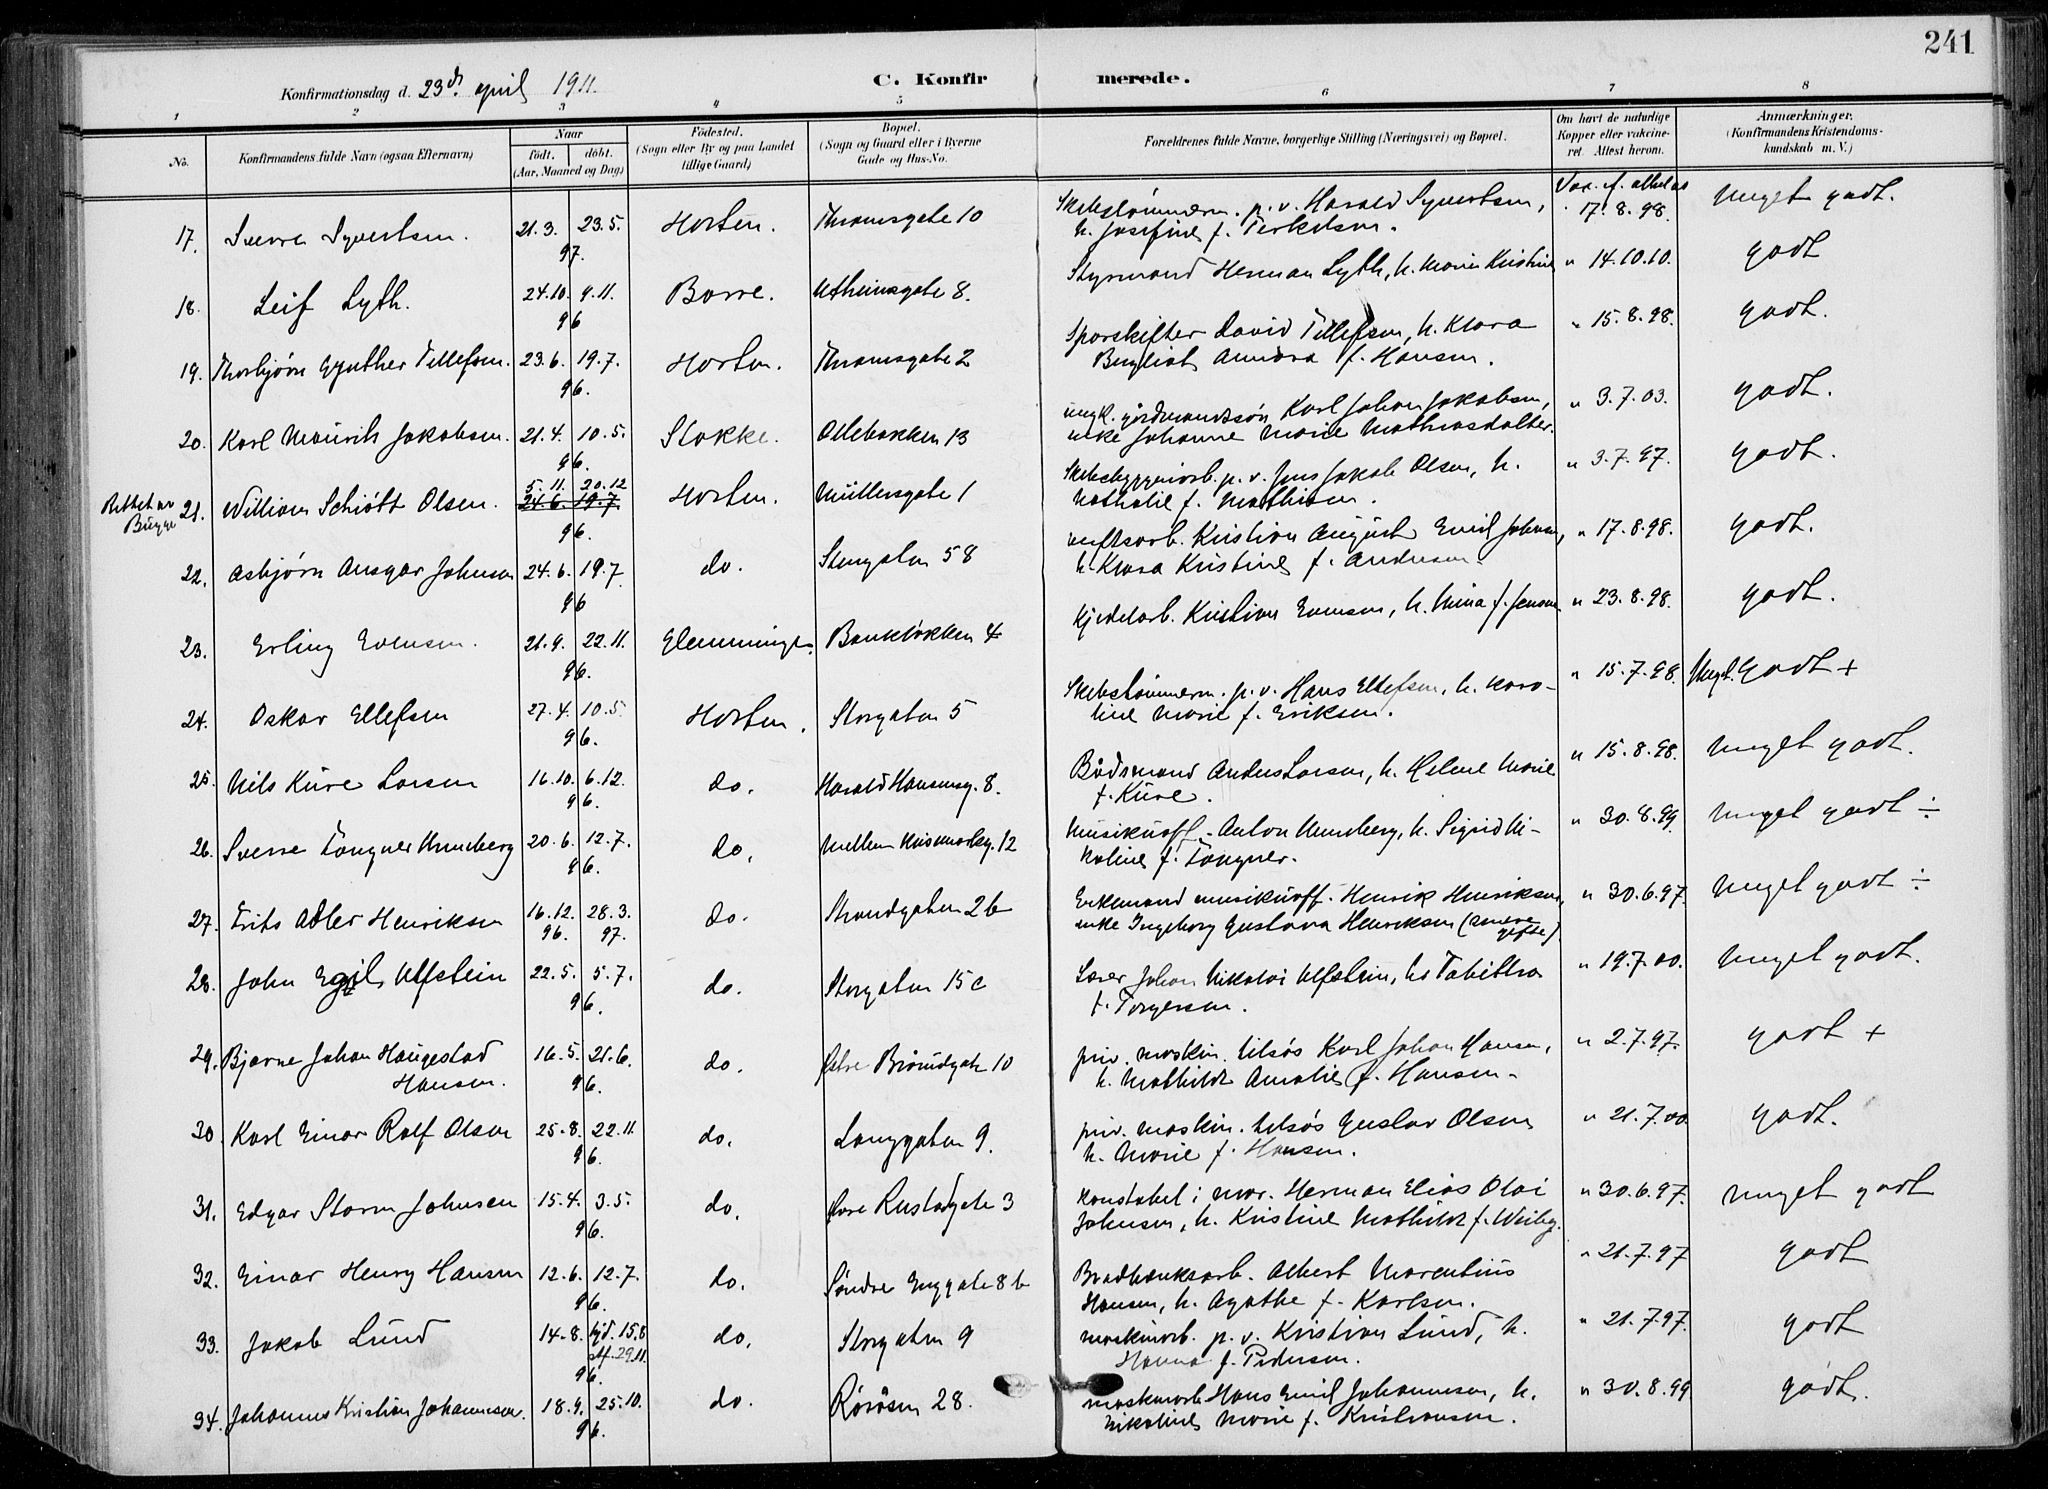 241
C. Konfirmerede.
Konfirmationsdag d. 23de april 1911.
1 2 3 4 5 6 7 8
No. Konfirmandens fulde Navn (ogsaa Efternavn) Naar født. døbt. (Aar, Maaned og Dag) Fødested. (Sogn eller By og paa Landet tillige Gaard) Bopæl. (Sogn og Gaard eller i Byerne Gade og Hus-No. Forældrenes fulde Navne, borgerlige Stilling (Næringsvei) og Bopæl. Om havt de naturlige Kopper eller vakcineret. Attest herom. Anmærkninger. (Konfirmandens Kristendomskundskab m. V.)
17. Sverre Syvertsen. 21.3. 23.5. 97. Horten. Thranesgate 10 Skibstømmerm. p. v. Harald Syvertsen, Vac. e. attest av 17.8.98. Meget godt.
h. Josefine f. Terkelsen.
18. Leif Lyth. 24.10. 9.11. 96 Borre. 8. Styrmand Herman Lyth, h. Marie Kristine " 14.10.10. godt
19. Thorbjørn Gynther Tellefsen. 23.6. 19.7. 96. Horten. Thranesgate 2 Sporskifter David Tellefsen, h. Klara " 15.8.98. godt.
Bergliot f. Hansen.
20. Karl Mauritz Jakobsen. 21.4. 10.5. 96. Stokke. Ollebakken 13 ungk. gårdmandssøn Karl Johan Jakobsen, " 3.7.03. godt.
enke Johanne Marie Mathiasdatter.
Rettet av Bugge 21. William Schiøtt Olsen. 5.11. 20.12 24.6. 19.7 96. Horten. Müllersgate 1 Skibsbyggeriarb. p. v. Jens Jakob Olsen, h. " 3.7.97. godt.
Nathalie f. Mathisen.
22. Asbjørn Ansgar Johnsen 24.6. 19.7 96 do. Stengaten 58 verftsarb. Kristian August Emil Johnsen, " 17.8.98. godt.
h. Klara Kristine f. Andersen.
23. Erling Evensen. 21.9. 22.11. 96. Glemminge. Bankløkken 4 Kjedelarb. Kristian Evensen, h. Mina f. Jensen " 23.8.98. godt.
24. Oskar Ellefsen 27.4. 10.5. 96. Horten. Storgaten 5 Skibstømmerm. p. v. Hans Ellefsen, h. Karo- " 15.7.98. Meget godt +
line Marie f. Eriksen.
25. Nils Kure Larsen 16.10. 6.12. 96. do. Harald Hansensg. 8. Bådsmand Anders Larsen, h. Helene Marie " 15.8.98. meget godt.
f. Kure.
26. Sverre Tangner Munsberg 20.6. 12.7. 96. do. Mellem 12 Musikuoff. Anton Munsberg, h. Sigrid Ni- " 30.8.99. meget godt ÷
koline f. Tangner.
27. Frits Adler Henriksen 16.12. 96. 28.3. 97. do. Strandgaten 2b Enkemand musikuoff. Henrik Henriksen, " 30.6.97. meget godt ÷
enke Ingeborg Gustava Henriksen (senere gifte)
28. John Egil Ulfstein 22.5. 5.7. 96. do. Storgaten 15c Lærer Johan Nikolai Ulfstein, h. Tabitha " 19.7.00. meget godt.
f. Torgersen.
29. Bjarne Johan Haugestad Hansen. 16.5. 21.6. 96. do. Østre Braarudgate 10 priv. maskin. tilsøs Karl Johan Hansen, " 2.7.97. godt +
h. Mathilde Amalie f. Hansen.
30. Karl Einar Rolf Olsen 25.8. 22.11. 96. do. Langgaten 9. priv. maskin. tilsøs Gustav Olsen " 21.7.00. godt.
h. Marie f. Hansen.
31. Edgar Storm Johnsen 15.4. 3.5. 96. do. Øvre Rustadgate 3 Konstabel i mar. Herman Elias Olai " 30.6.97. meget godt
Johnsen, h. Kristine Mathilde f. Weiby.
32. Einar Henry Hansen 12.6. 12.7. 96. do. Søndre Enggate 8b Bradbænksarb. Albert Marentius " 21.7.97 godt
Hansen, h. Agathe f. Karlsen.
33. Jakob Lund 14.8. hjd. 15.8 st. 29.11. 96. do. Storgaten 9 maskinarb. p. v. Kristian Lund, h. " 21.7.97. godt
Hanna f. Pedersen.
34. Johannes Kristian Johannesen. 18.9. 25.10. 96. do. Røråsen 28. maskinarb Hans Emil Johannesen, h. " 30.8.99 godt.
Nikoline Marie f. Kristiansen.